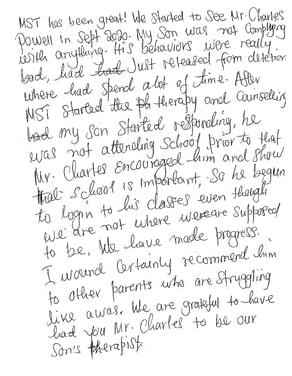 MST has been great! We started to See Mr. Charles
Powell in Sept 2020. My Son was not Complying
with anything. His behaviors were really
bad, had had Just released from detention
where had Spend a lot of time. After
MST Started the ph therapy and Counselling
had my Son Started responding, he
was not attending School prior to that
Mr. Charles Encouraged him and Show
that School is Important, So he begun
to login to his classes even though
we are not where we are supposed
to be, We have made progress.
I wound Certainly recommend him
to other parents who are Struggling
like a was. We are grateful to have
had you Mr. Charles to be our
Son's therapist.